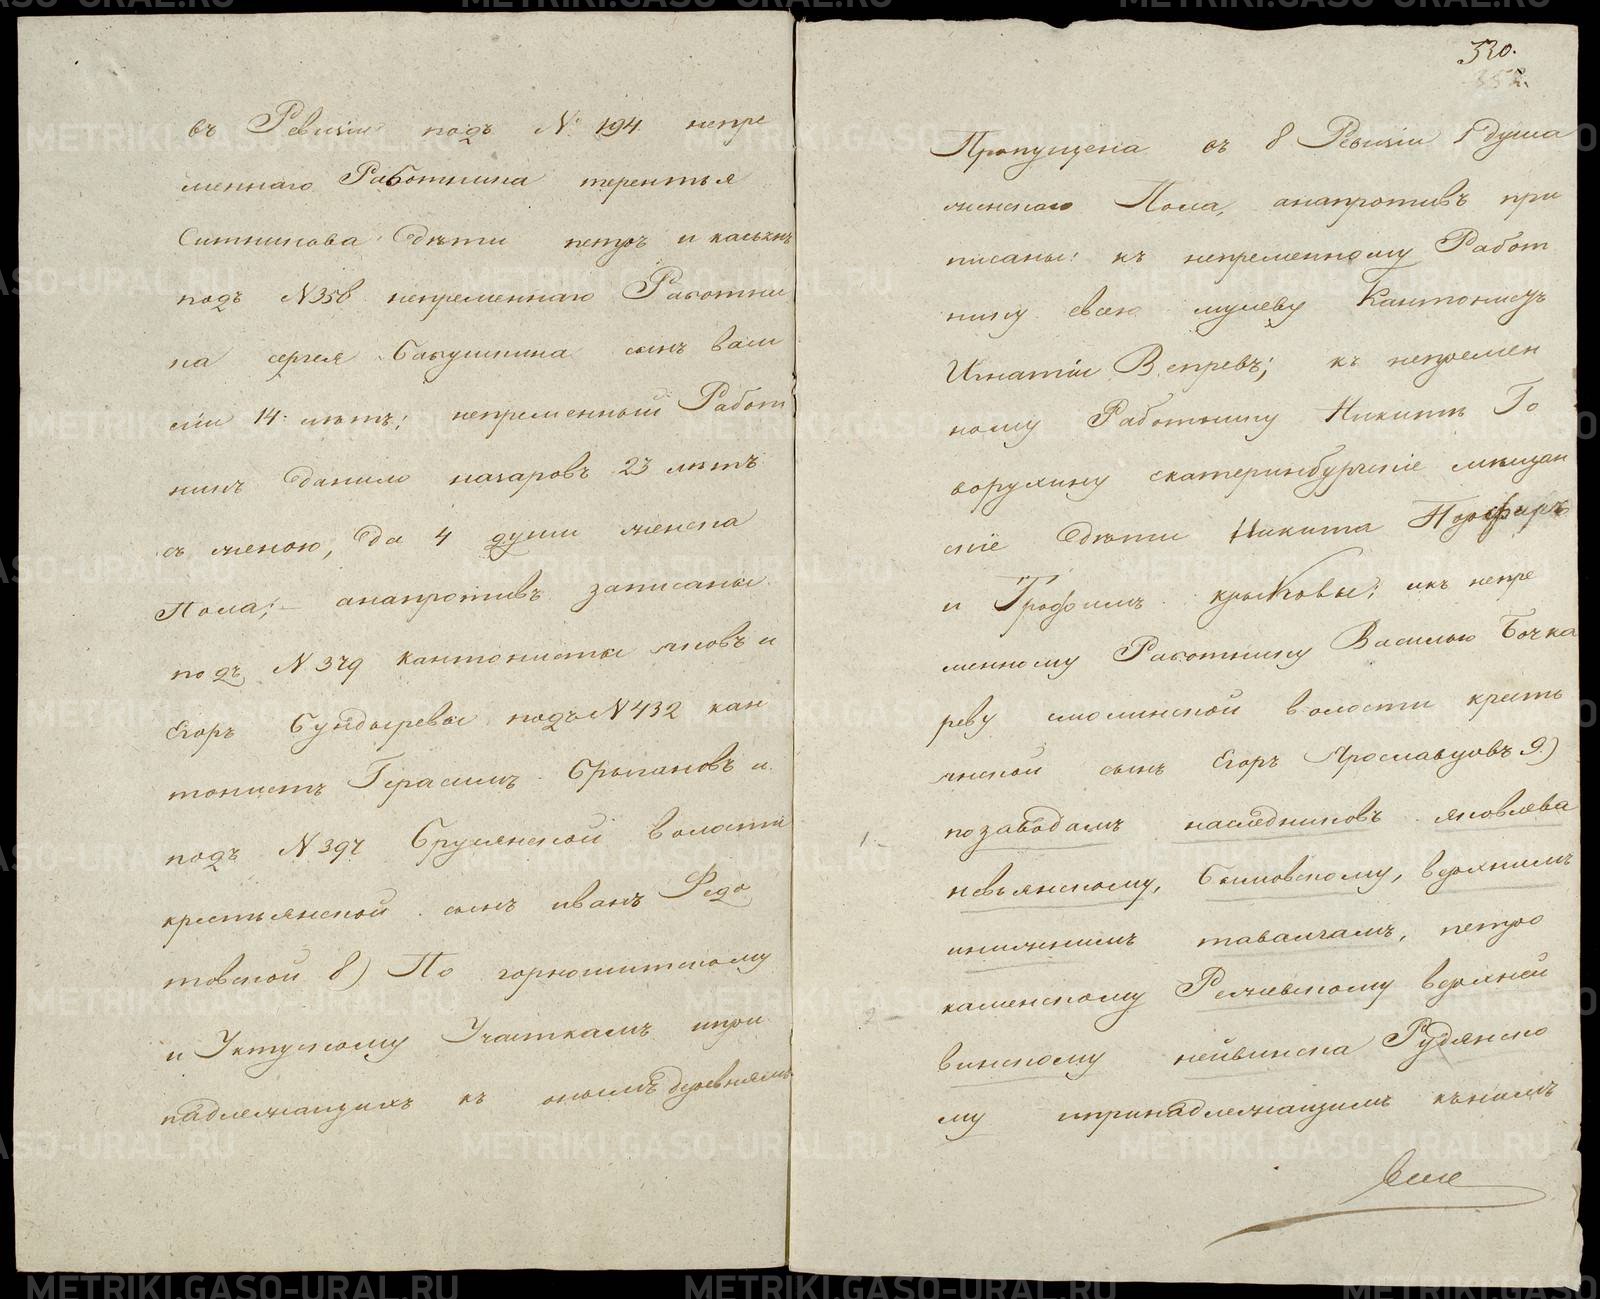 въ Ревизіи подъ № 194 непре
меннаго Работника терентья
Ситникова Дѣти петръ и касьянъ
подъ №358 непременнаго Работни
ка сергея Бабушкина сынъ васи
лій 14: лѣтъ; непременный Работ
никъ Данило назаровъ 23 лѣтъ
съ женою, Да 4 души женска
Пола; — анапротивъ записаны
подъ №379 кантонисты яковъ и
Егоръ Бундыревы подъ №432 кан
тонистъ Герасимъ и
подъ Бруснянской волости
крестьянской сынъ иванъ Федо
товской 8) По горнощитскому
и Уктускому Участкамъ ипри
надлежащихъ къ онымъ деревнямъ
330.
Пропущена въ 8 Ревизіи 1 душа
женскаго Пола, анапротивъ при
писаны: къ непременному Работ
нику Кантонистъ
Игнатій Вепревъ; къ непремен
ному Работнику Никитѣ Го
ворухину екатеринбургскіе мѣщан
скіе Дѣти Никита Порфиръ
и Трофимъ крыковы; икъ непре
менному Работнику Василью Бочка
реву смолинской волости кресть
янской сынъ Егоръ Ярославцовъ 9.)
1. позаводамъ наследниковъ яковлева
невьянскому, Бымовскому, верхнимъ
инижнимъ таваlгамъ, петро
2 каменскому Режевскому верхней
винскому нейвинска Рудянско
му ипринадлежащимъ кънимъ